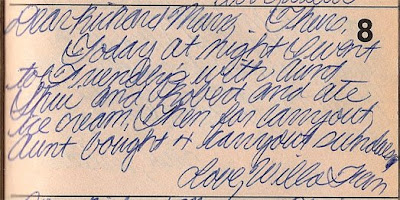 Dear Richard Marx, Thurs.
8
Today at night I went
to Friendly's with Aunt
and Robert and ate
ice cream. Then for carryout
Aunt bought 4 carryout sundaes
Love, Willa Fran